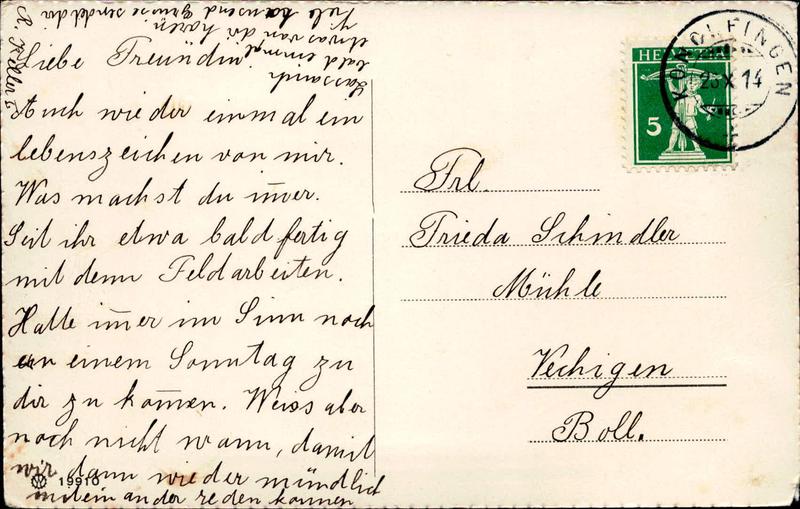 Liebe Freundin
Auch wieder einmal ein
lebenszeichen von mir.
Was machst du im̄er.
Seit ihr etwa bald fertig
mit dem Feldarbeiten.
Hatte im̄er im Sinn noch
an einem Sonntag zu
dir zu kom̄en. Weiss aber
noch nicht wann, damit
wir dann wieder mündlich
mitein ander reden können
Lass auch
bald einmal
etwas von dir hören
Viele tausend Grüsse sendet dir
HELVETIA
5
KONOLFINGEN
X 14
Frl.
Frieda Schindler
Mühle
Vechigen
Boll.
19910